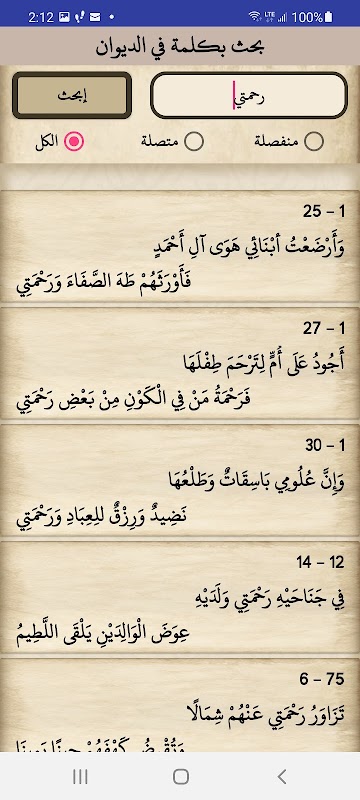 2:12 LTE 100%
بحث بكلمة في الديوان
رحمتي
إبحث
منفصلة متصلة الكل
1 – 25
وَأَرْضَعْتُ أَبْنَائِي هَوَى آلِ أَحْمَدٍ
فَأَوْرَثَهُمْ طَهَ الصَّفَاءَ وَرَحْمَتِي
1 – 27
أَجُودُ عَلَى أُمٍّ لِتَرْحَمَ طِفْلَهَا
فَرَحْمَةُ مَنْ فِي الْكَوْنِ مِنْ بَعْضِ رَحْمَتِي
1 – 30
وَإِنَّ عُلُومِي بَاسِقَاتٌ وَطَلْعُهَا
نَضِيدٌ وَرِزْقٌ للعِبَادِ وَرَحْمَتِي
12 – 14
فِي جَنَاحَيْهِ رَحْمَتِي وَلَدَيْهِ
عِوَضَ الْوَالِدَيْنِ يَلْقَى اللَّطِيمُ
75 – 6
تَزَاوَرُ رَحْمَتِي عَنْهُمْ شِمَالًا